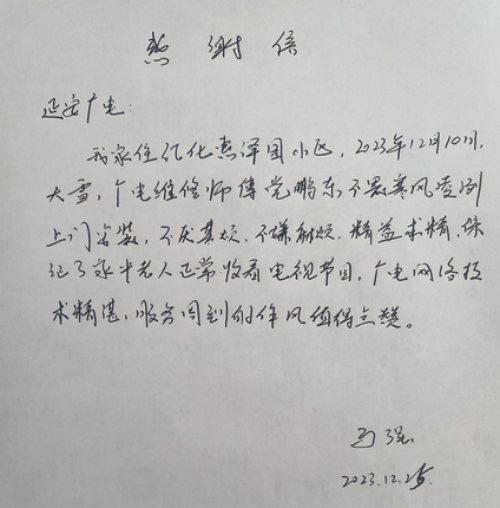 感谢信
延安广电:
我家住亿化惠泽园小区,2023年12月10日,
大雪,广电维修师傅党鹏东不畏寒风凛冽
上门安装,不厌其烦,不嫌麻烦,精益求精,保
证了家中老人正常收看电视节目,广电网络技
术精湛,服务周到的作风值得点赞。
马强
2023.12.25